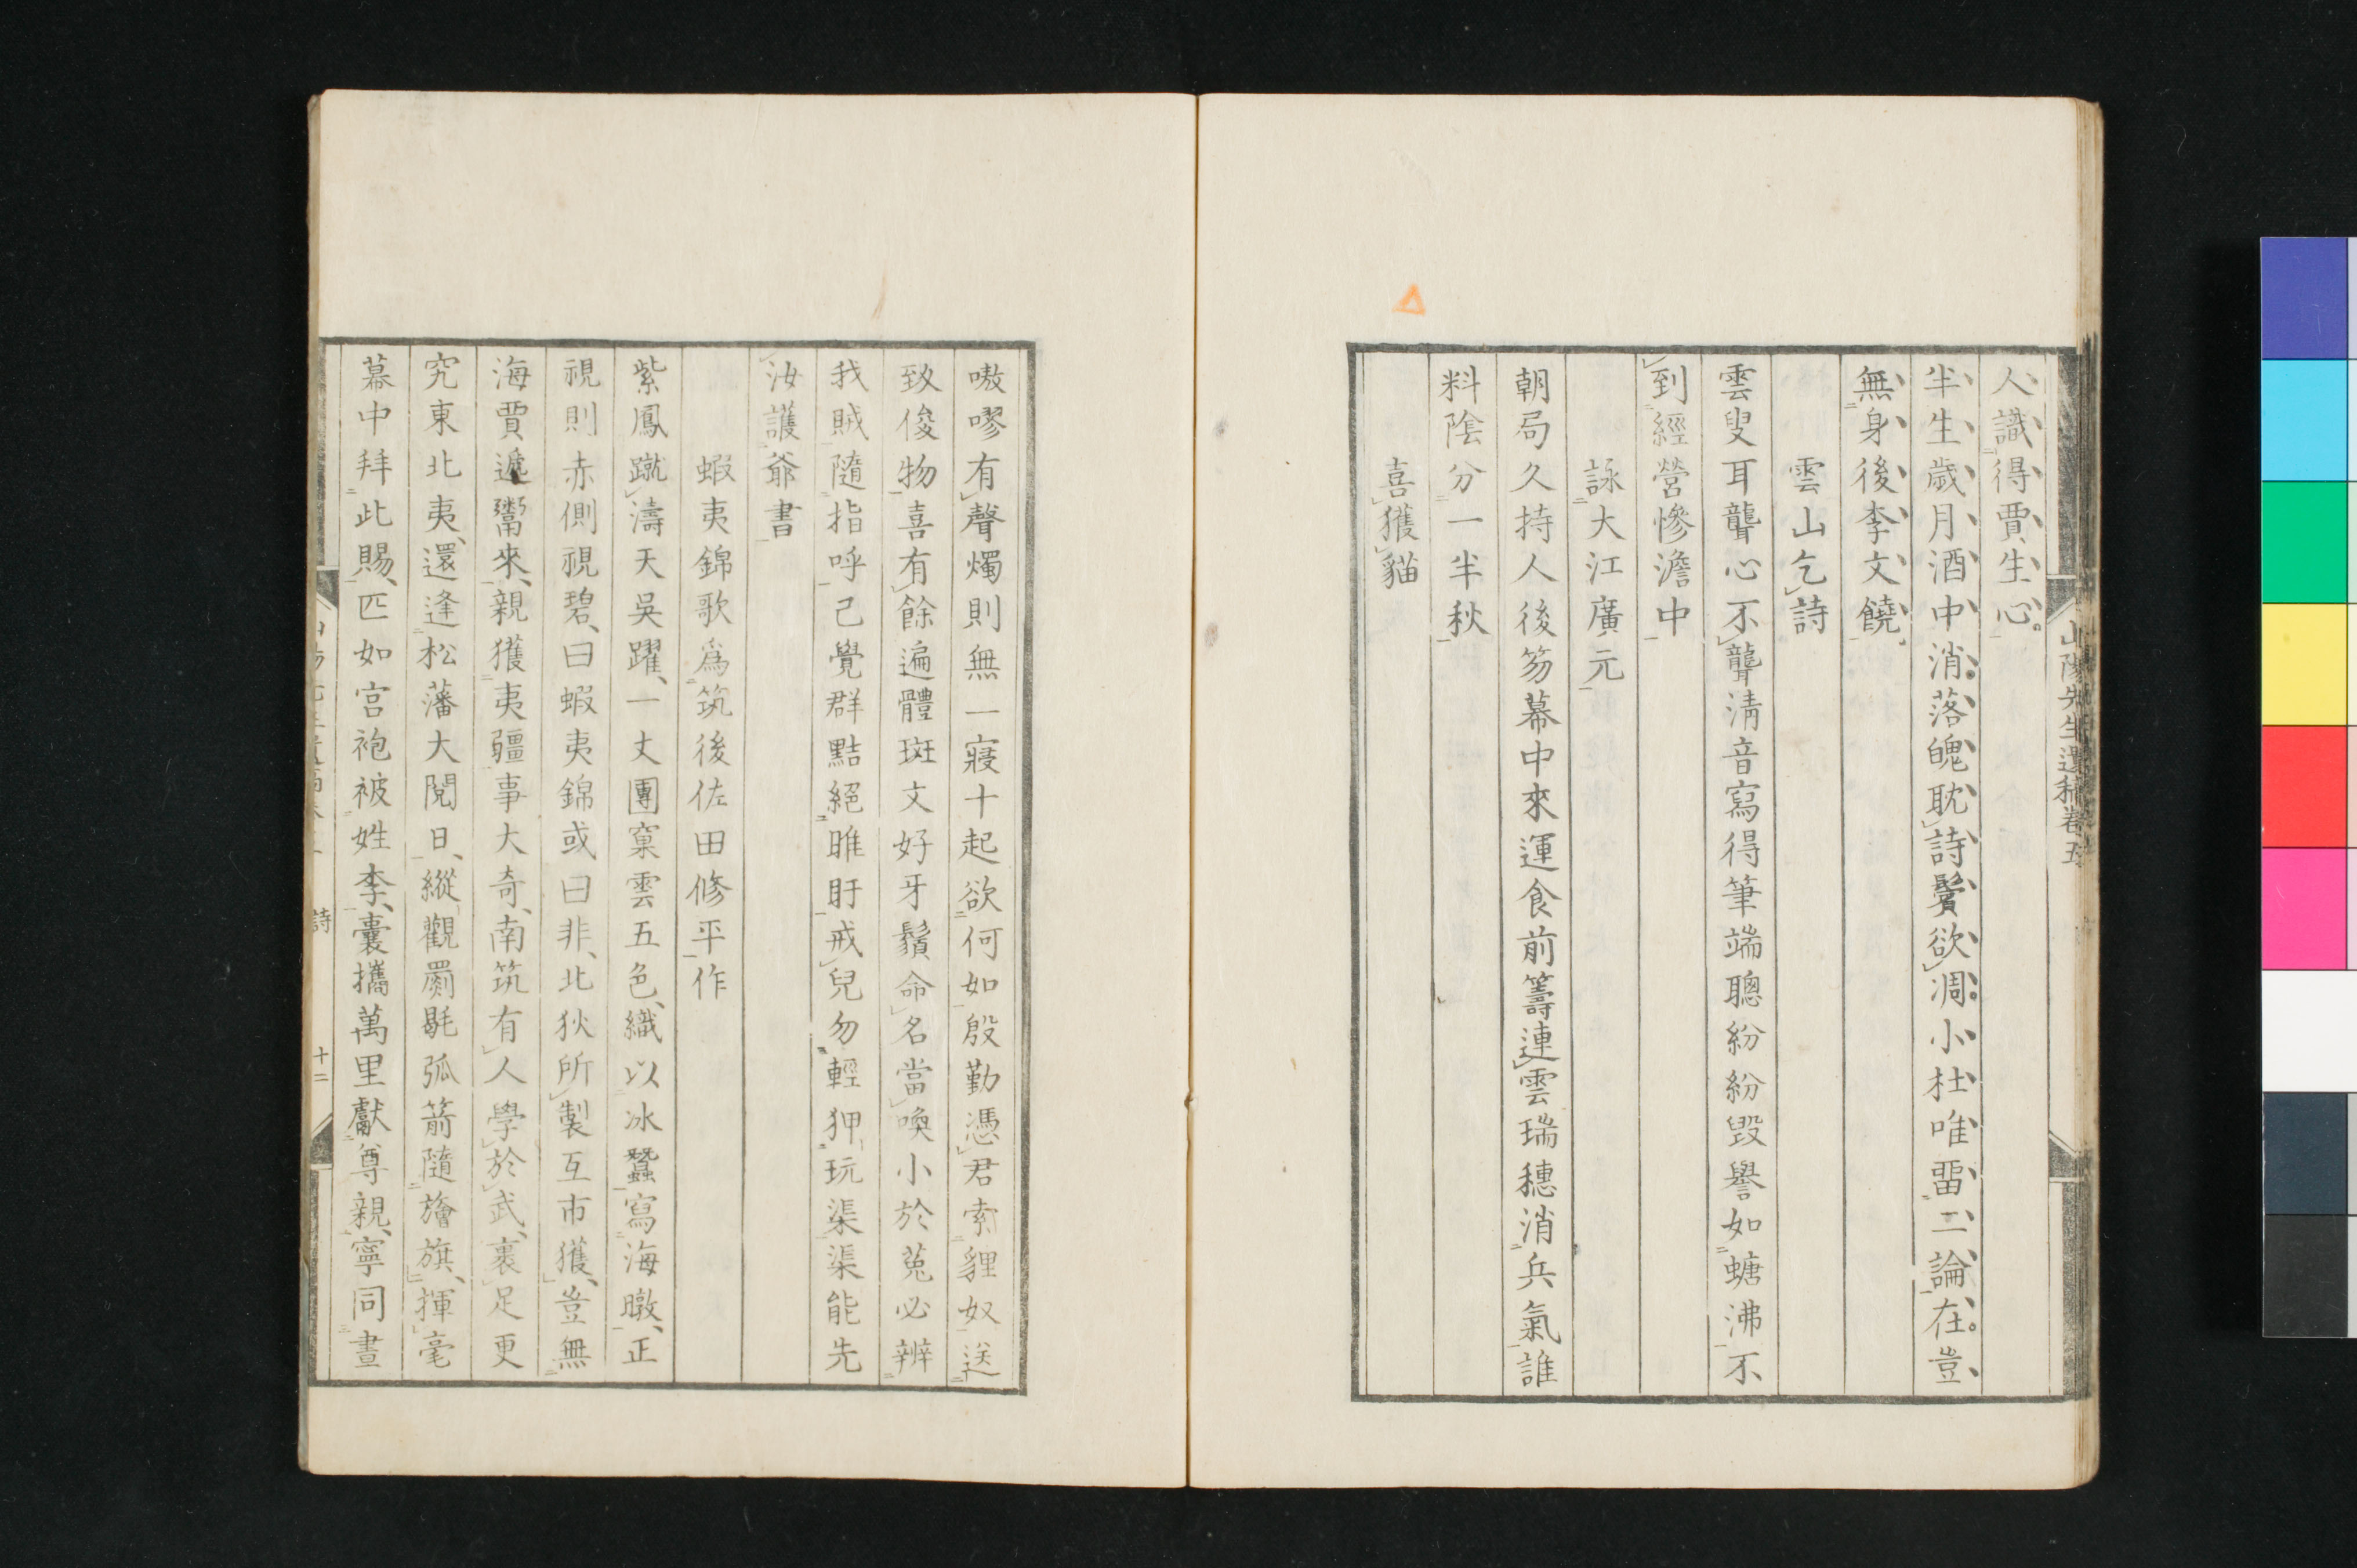 山陽先生遺稿卷五
人識得賈生心
半生歲月酒中消落魄耽詩鬢欲凋小杜唯留二論在豈
無身後李文饒
雲山乞詩
雲叟耳聾心不聾淸音寫得筆端聰紛紛毀譽如螗沸不
到經營慘澹中
詠大江廣元
朝局久持人後笏幕中來運食前籌連雲瑞穗消兵氣誰
料陰分一半秋
喜獲貓
嗷嘐有聲燭則無一寢十起欲何如殷勤憑君索貍奴送
致俊物喜有餘遍體斑文好牙鬚命名當喚小於菟必辨
我賊隨指呼已覺群黠絕睢盱戒兒勿輕狎玩渠渠能先
汝護爺書
蝦夷錦歌爲筑後佐田修平作
紫鳳蹴濤天吳躍一丈團窠雲五色織以冰蠶寫海暾正
視則赤側視碧曰蝦夷錦或曰非北狄所製互市獲豈無
海賈遞鬻來親獲夷疆事大奇南筑有人學於武裹足更
究東北夷還逢松藩大閱日縱觀罽毼弧箭隨旝旗揮毫
幕中拜此賜匹如宮袍被姓李囊攜萬里獻尊親寧同晝
詩 十二